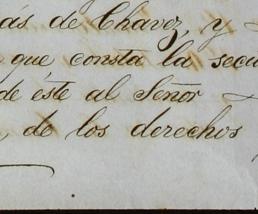 ás de Chavez, y
que consta la secu
de éste al Señor
, de los derechos